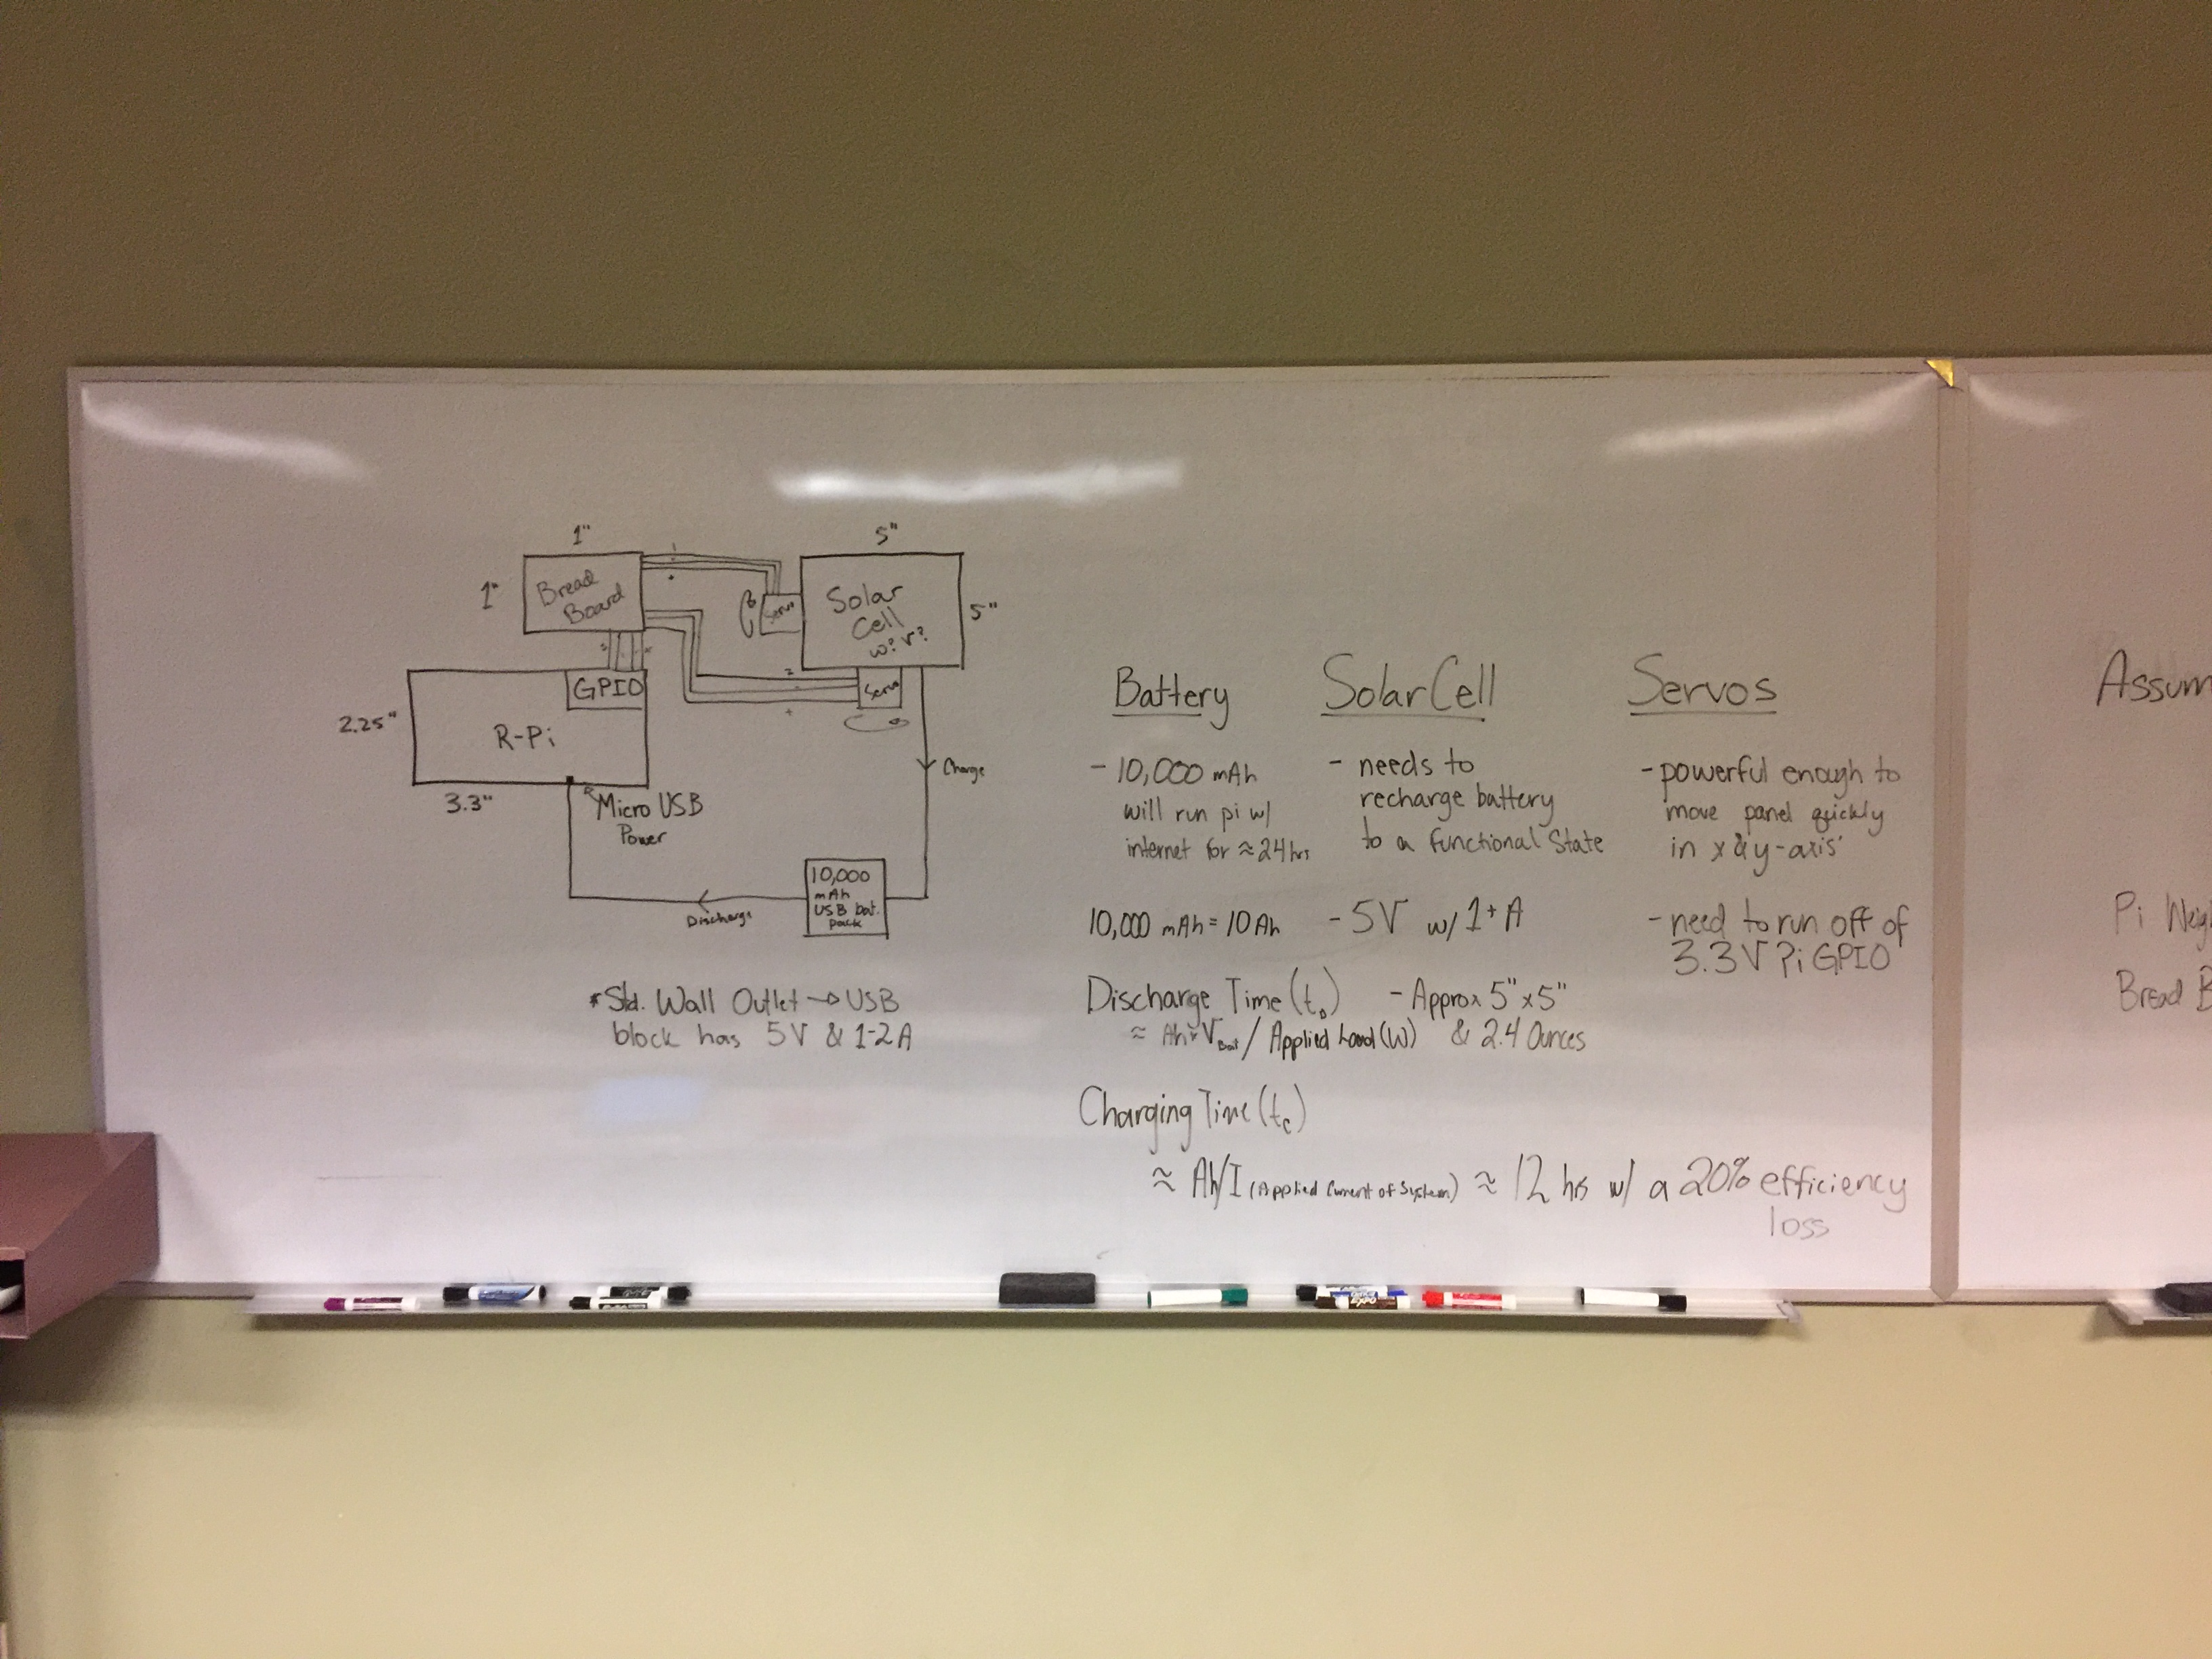 1"
1"
Bread
Board
5"
5"
Solar
Cell
w? v?
Servo
Servo
GPIO
R-Pi
2.25"
3.3"
Micro USB
Power
Charge
Discharge
10,000
mAh
USB bat.
pack
*Std. Wall Outlet → USB
block has 5V & 1-2A
Battery
- 10,000 mAh
will run pi w/
internet for ≈ 24 hrs
10,000 mAh = 10 Ah
Discharge Time (t
≈ Ah * V Bat / Applied Load (W)
Charging Time (tc)
≈ Ah/I (Applied Current of System) ≈ 12 hrs w/ a 20% efficiency
loss
Solar Cell
- needs to
recharge battery
to a functional State
- 5V w/ 1+ A
- Approx 5" x 5"
& 2.4 Ounces
Servos
- powerful enough to
move panel quickly
in x & y-axis'
- need to run off of
3.3V Pi GPIO
Assum
Pi Weig
Bread B